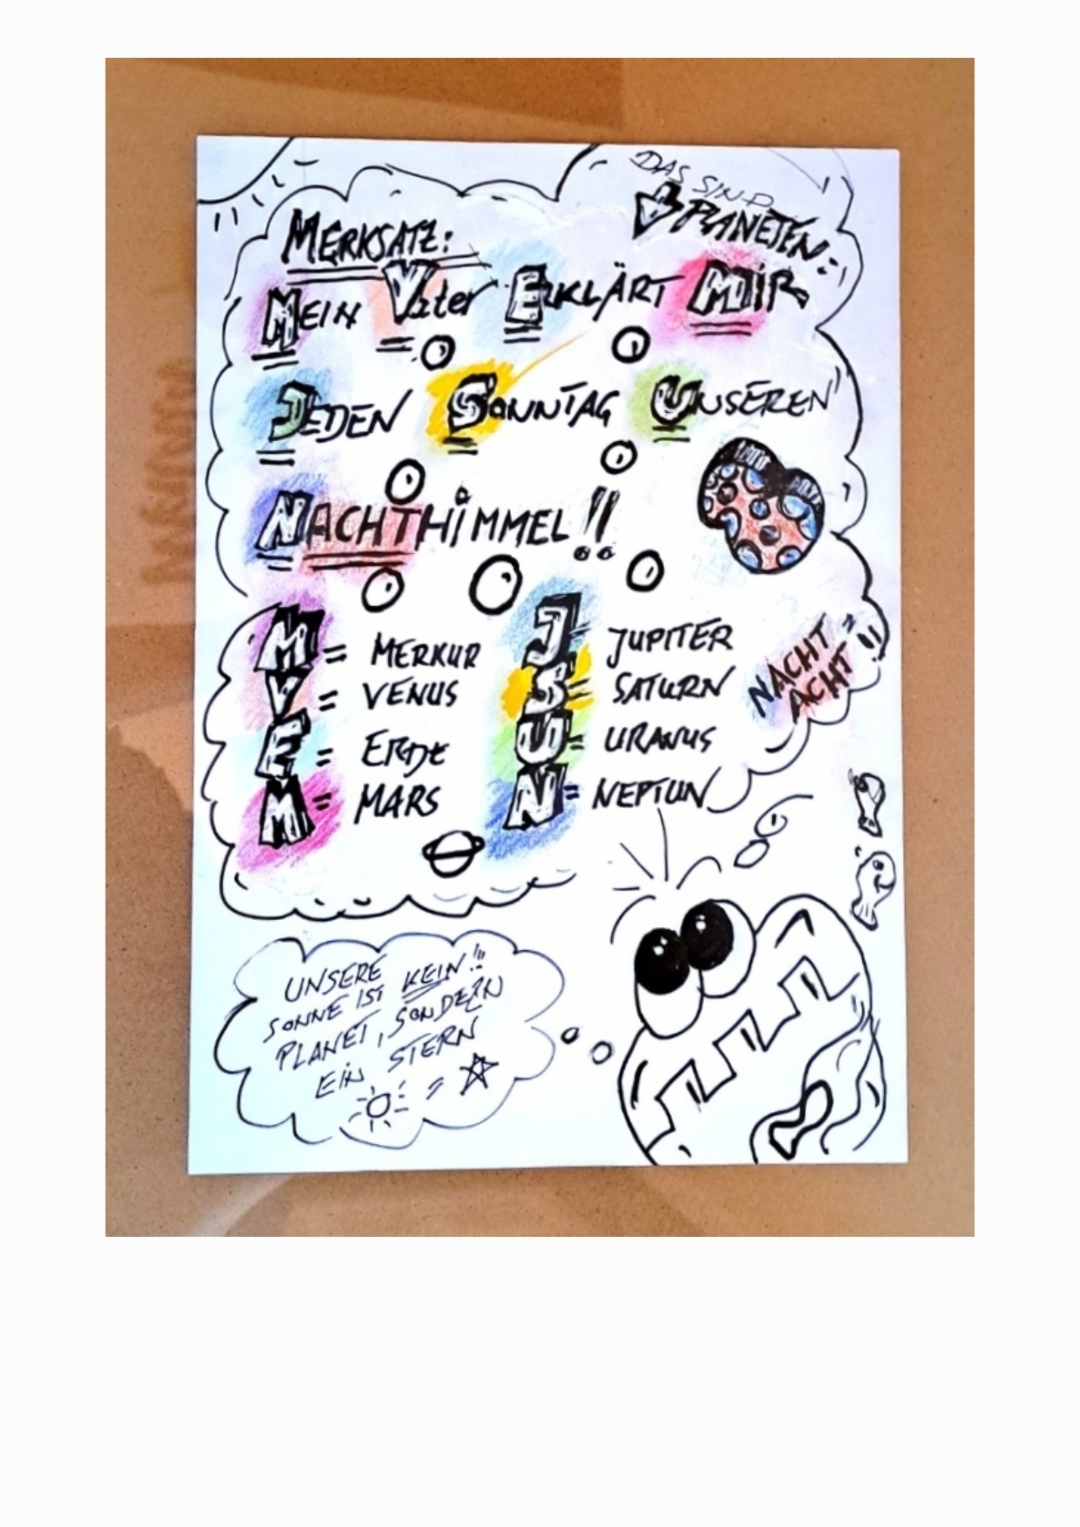 DAS SIND
PLANETEN:
MERKSATZ:
MEIN Vater ERKLÄRT MiR
JEDEN SONNTAG UNSEREN
NACHTHiMMEL!!
M = MERKUR
V = VENUS
E = ERDE
M = MARS
J = JUPITER
S = SATURN
U = URANUS
N = NEPTUN
NACHT
ACHT !!
UNSERE
SONNE IST KEIN!!!
PLANET, SONDERN
EiN STERN
=